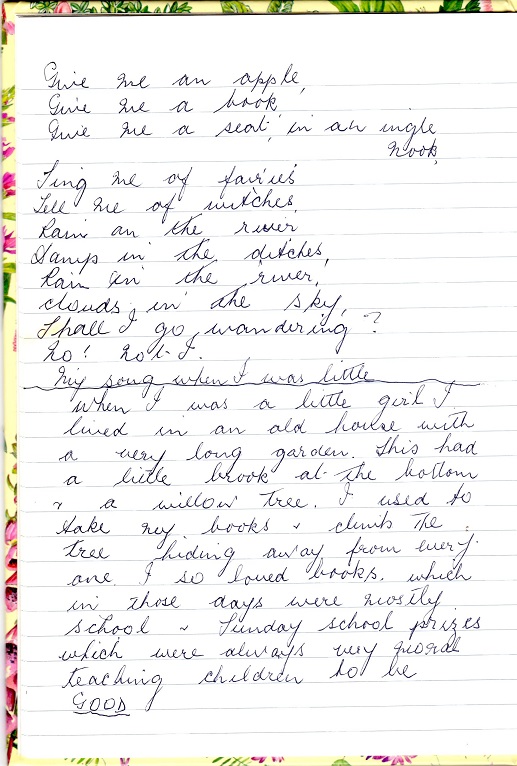 Give me an apple,
Give me a book,
Give me a seat, in an ingle
nook,
Sing me of fairies
Tell me of witches,
Rain on the river
Damp in the ditches,
Rain on the river,
clouds in the sky,
Shall I go wandering?
No! Not I.
My song when I was little
When I was a little girl I
lived in an old house with
a very long garden. This had
a little brook at the bottom
& a willow tree. I used to
take my books & climb the
tree hiding away from every
one. I so loved books, which
in those days were mostly
school & Sunday school prizes
which were always very moral
teaching children to be
GOOD